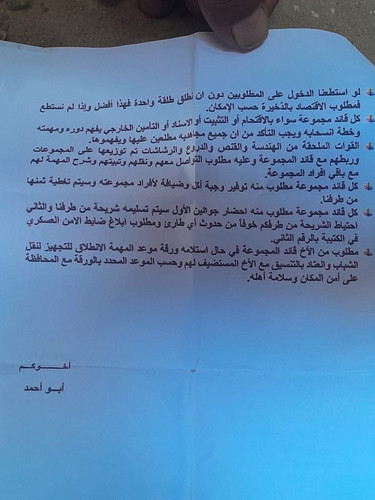 لو استطعنا الدخول على المطلوبين دون ان نطلق طلقة واحدة فهذا أفضل وإذا لم نستطع
فمطلوب الاقتصاد بالذخيرة حسب الإمكان.
كل قائد مجموعة سواء بالاقتحام أو التثبيت أو الاسناد أو التأمين الخارجي يفهم دوره ومهمته
وخطة انسحابه ويجب التأكد من ان جميع مجاهديه مطلعين عليها ويفهموها.
القوات الملحقة من الهندسة والقنص والدروع والرشاشات تم توزيعها على المجموعات
وربطهم مع قائد المجموعة وعليه مطلوب التواصل معهم ونقلهم وتبيتهم وشرح المهمة لهم
مع باقي أفراد المجموعة.
كل قائد مجموعة مطلوب منه توفير وجبة أكل وضيافة لأفراد مجموعته وسيتم تغطية ثمنها
من طرفنا.
كل قائد مجموعة مطلوب منه احضار جوالين الأول سيتم تسليمه شريحة من طرفنا والثاني
احتياط الشريحة من طرفكم خوفاً من حدوث أي طارئ ومطلوب ابلاغ ضابط الامن العسكري
في الكتيبة بالرقم الثاني.
مطلوب من الأخ قائد المجموعة في حال استلامه ورقة موعد المهمة الإنطلاق للتجهيز لنقل
الشباب والعتاد بالتنسيق مع الأخ المستضيف لهم وحسب الموعد المحدد بالورقة مع المحافظة
على أمن المكان وسلامة أهله.
أخــــوكــــم
أبــو أحمد